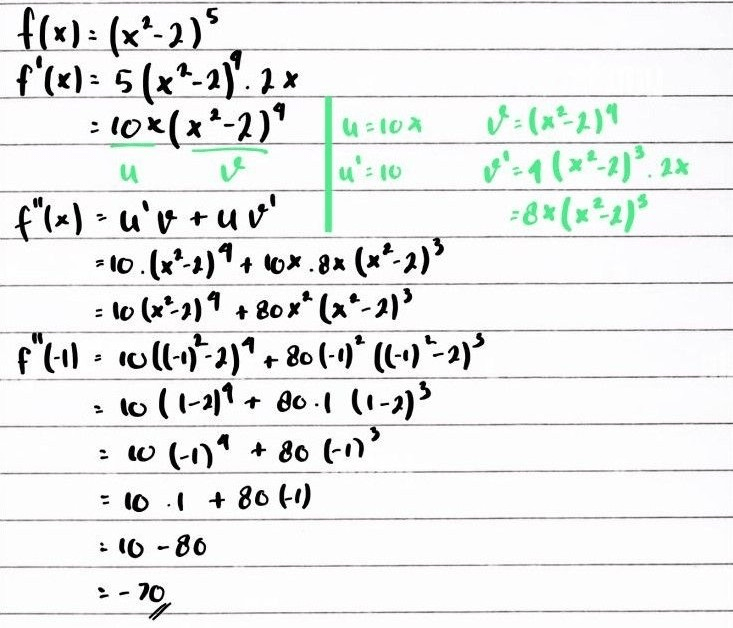 f(x) = (x²-2)⁵
f'(x) = 5(x²-2)⁴ . 2x
= 10x(x²-2)⁴
u v
u = 10x v = (x²-2)⁴
u' = 10 v' = 4(x²-2)³ . 2x
= 8x(x²-2)³
f''(x) = u'v + uv'
= 10.(x²-2)⁴ + 10x . 8x (x²-2)³
= 10(x²-2)⁴ + 80x² (x²-2)³
f''(-1) = 10((-1)²-2)⁴ + 80(-1)² ((-1)²-2)³
= 10 (1-2)⁴ + 80 . 1 (1-2)³
= 10 (-1)⁴ + 80 (-1)³
= 10 . 1 + 80 (-1)
= 10 - 80
= -70